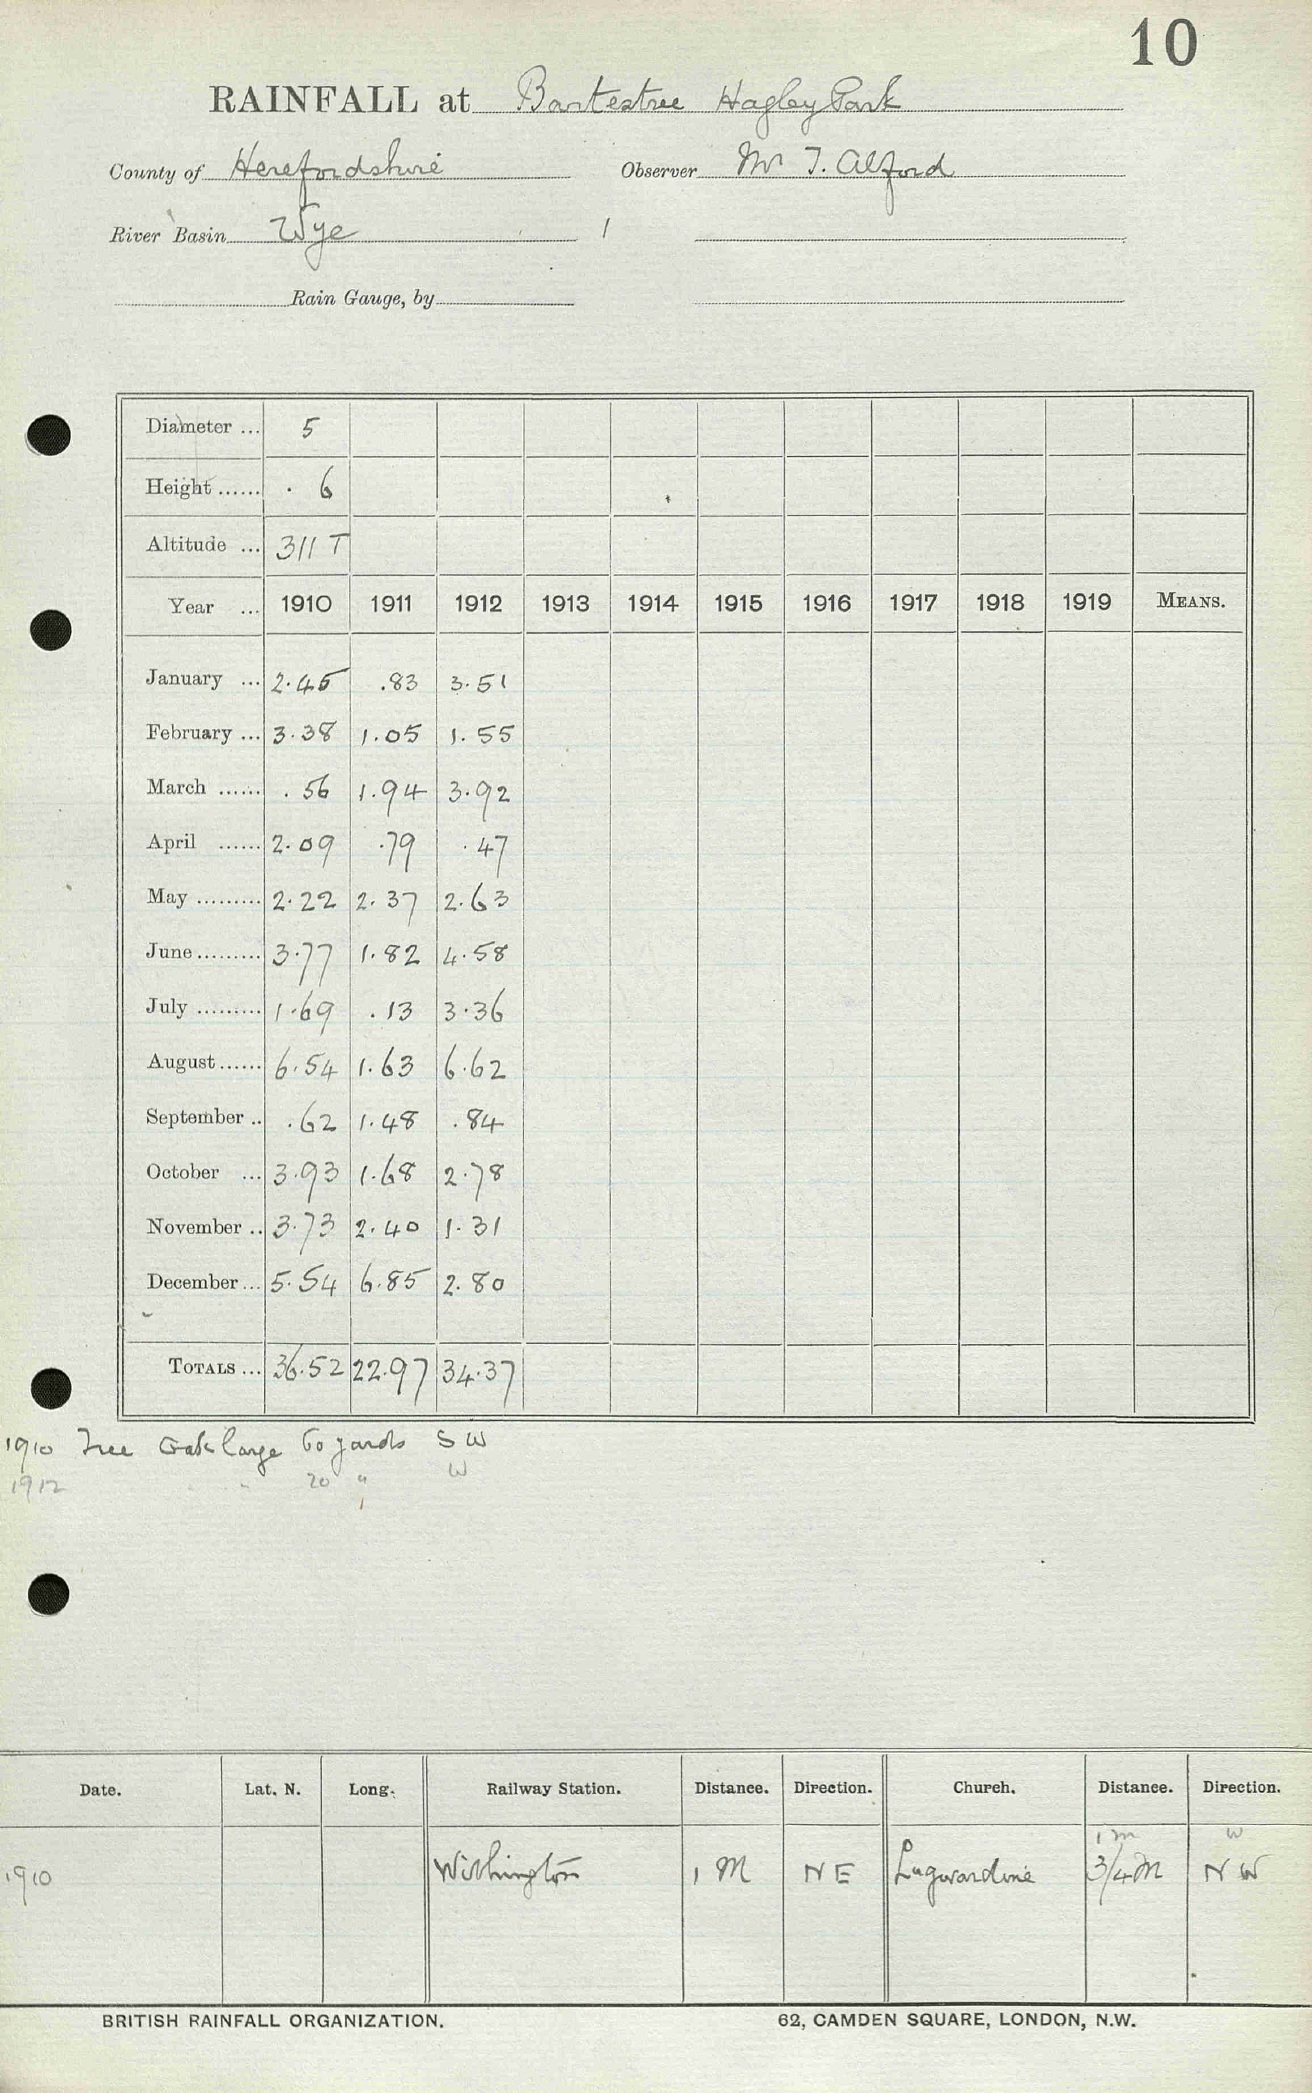 10
RAINFALL at Bartestree Hagley Park
County of Herefordshire Observer Mr T. Alford
River Basin Wye 1
Rain Gauge, by
Diameter ... 5
Height ...... . 6
Altitude ... 311 T
Year ... 1910 1911 1912 1913 1914 1915 1916 1917 1918 1919 MEANS.
January ... 2.45 .83 3.51
February ... 3.38 1.05 1.55
March ...... .56 1.94 3.92
April ...... 2.09 .79 .47
May ......... 2.22 2.37 2.63
June ......... 3.77 1.82 4.58
July ......... 1.69 .13 3.36
August ...... 6.54 1.63 6.62
September .. .62 1.48 .84
October ... 3.93 1.68 2.78
November .. 3.73 2.40 1.31
December ... 5.54 6.85 2.80
TOTALS ... 36.52 22.97 34.37
1910 Tree Oak large 60 yards SW
1912 " 20 " W
Date. Lat. N. Long. Railway Station. Distance. Direction. Church. Distance. Direction.
1 m W
1910 Withington 1 M NE Lugwardine 3/4 M NW
BRITISH RAINFALL ORGANIZATION. 62, CAMDEN SQUARE, LONDON, N.W.